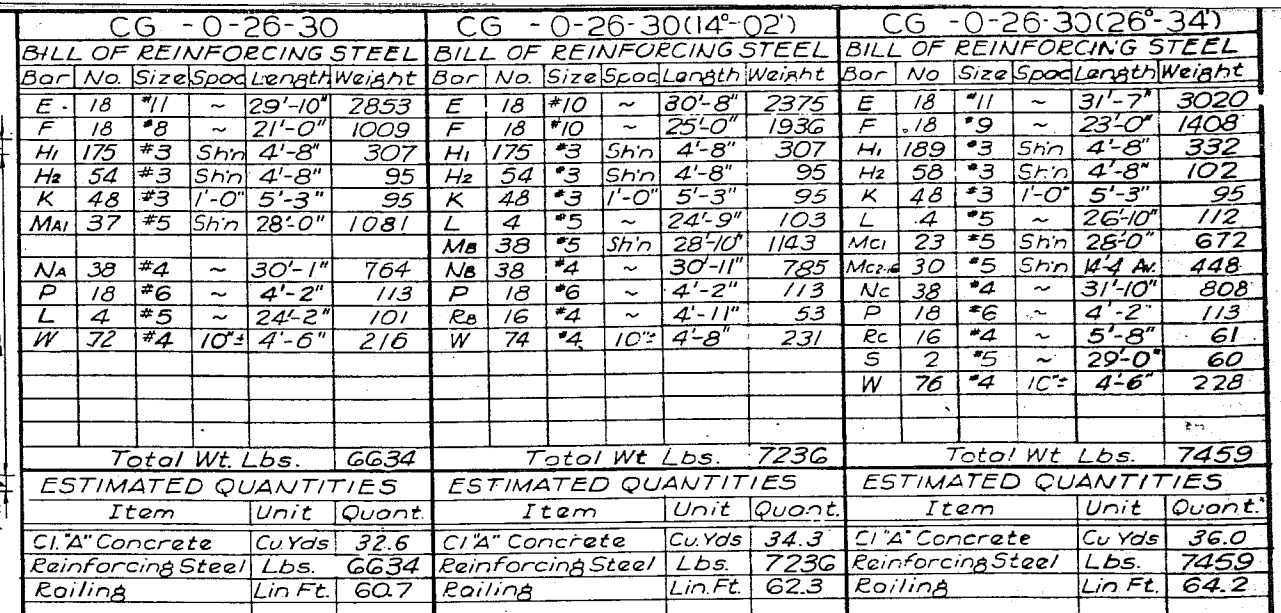 CG - O-26-30
BILL OF REINFORCING STEEL
Bar No. Size Spac Length Weight
E 18 #11 ~ 29'-10" 2853
F 18 #8 ~ 21'-0" 1009
H1 175 #3 Sh'n 4'-8" 307
H2 54 #3 Sh'n 4'-8" 95
K 48 #3 1'-0" 5'-3" 95
MA1 37 #5 Sh'n 28'-0" 1081
NA 38 #4 ~ 30'-1" 764
P 18 #6 ~ 4'-2" 113
L 4 #5 ~ 24'-2" 101
W 72 #4 10"± 4'-6" 216
Total Wt. Lbs. 6634
ESTIMATED QUANTITIES
Item Unit Quant.
Cl. "A" Concrete Cu.Yds 32.6
Reinforcing Steel Lbs. 6634
Railing Lin Ft. 60.7
CG - O-26-30(14°-02')
BILL OF REINFORCING STEEL
Bar No. Size Spac Length Weight
E 18 #10 ~ 30'-8" 2375
F 18 #10 ~ 25'-0" 1936
H1 175 #3 Sh'n 4'-8" 307
H2 54 #3 Sh'n 4'-8" 95
K 48 #3 1'-0" 5'-3" 95
L 4 #5 ~ 24'-9" 103
MB 38 #5 Sh'n 28'-10" 1143
NB 38 #4 ~ 30'-11" 785
P 18 #6 ~ 4'-2" 113
RB 16 #4 ~ 4'-11" 53
W 74 #4 10"± 4'-8" 231
Total Wt Lbs. 7236
ESTIMATED QUANTITIES
Item Unit Quant.
Cl "A" Concrete Cu.Yds 34.3
Reinforcing Steel Lbs. 7236
Railing Lin.Ft. 62.3
CG - O-26-30(26°-34')
BILL OF REINFORCING STEEL
Bar No Size Spac Length Weight
E 18 #11 ~ 31'-7" 3020
F 18 #9 ~ 23'-0" 1408
H1 189 #3 Sh'n 4'-8" 332
H2 58 #3 Sh'n 4'-8" 102
K 48 #3 1'-0" 5'-3" 95
L 4 #5 ~ 26'-10" 112
MC1 23 #5 Sh'n 28'-0" 672
MC2-16 30 #5 Sh'n 14'-4 Av. 448
NC 38 #4 ~ 31'-10" 808
P 18 #6 ~ 4'-2" 113
RC 16 #4 ~ 5'-8" 61
S 2 #5 ~ 29'-0" 60
W 76 #4 10"± 4'-6" 228
Total Wt Lbs. 7459
ESTIMATED QUANTITIES
Item Unit Quant.
Cl "A" Concrete Cu Yds 36.0
Reinforcing Steel Lbs. 7459
Railing Lin Ft. 64.2